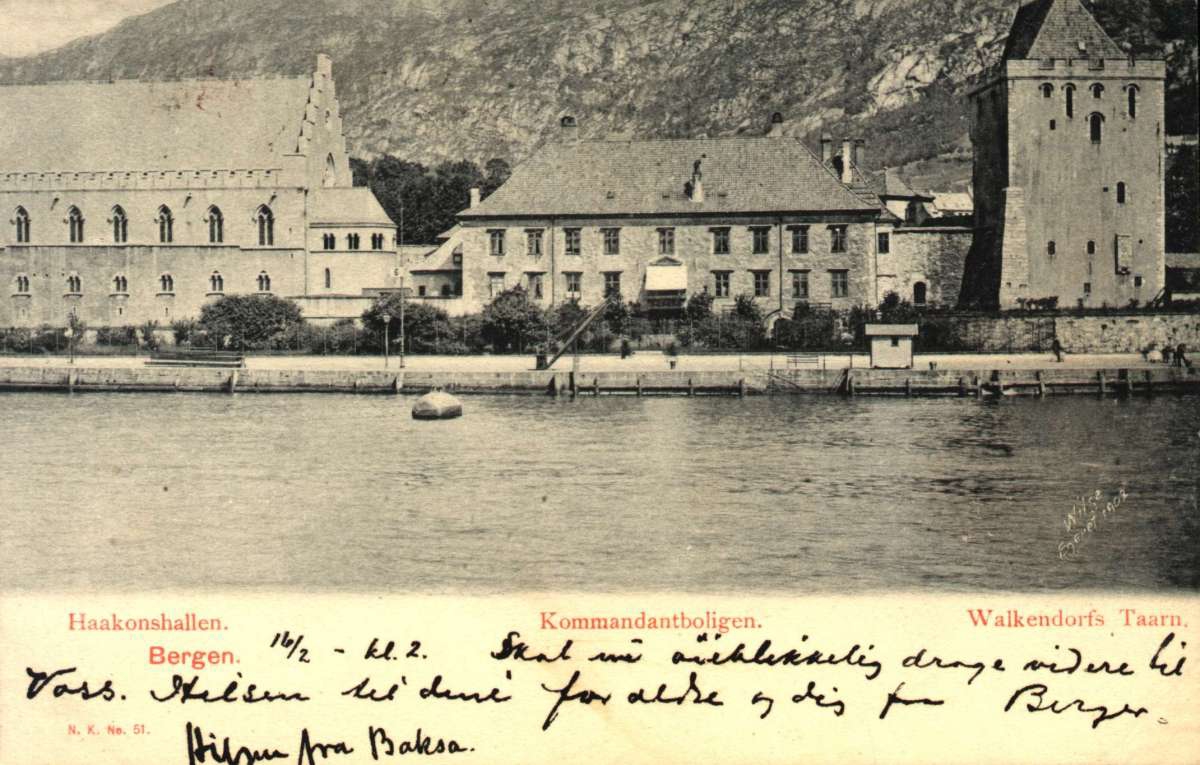 Wilse
Eneret 1902
Haakonshallen. Kommandantboligen. Walkendorfs Taarn.
Bergen. 16/2 - kl. 2. Skal nu øieblikkelig drage videre til
Voss. Hilsen til dine forældre og dig fra Berger.
N. K. No. 51.
Hilsen fra Baksa.